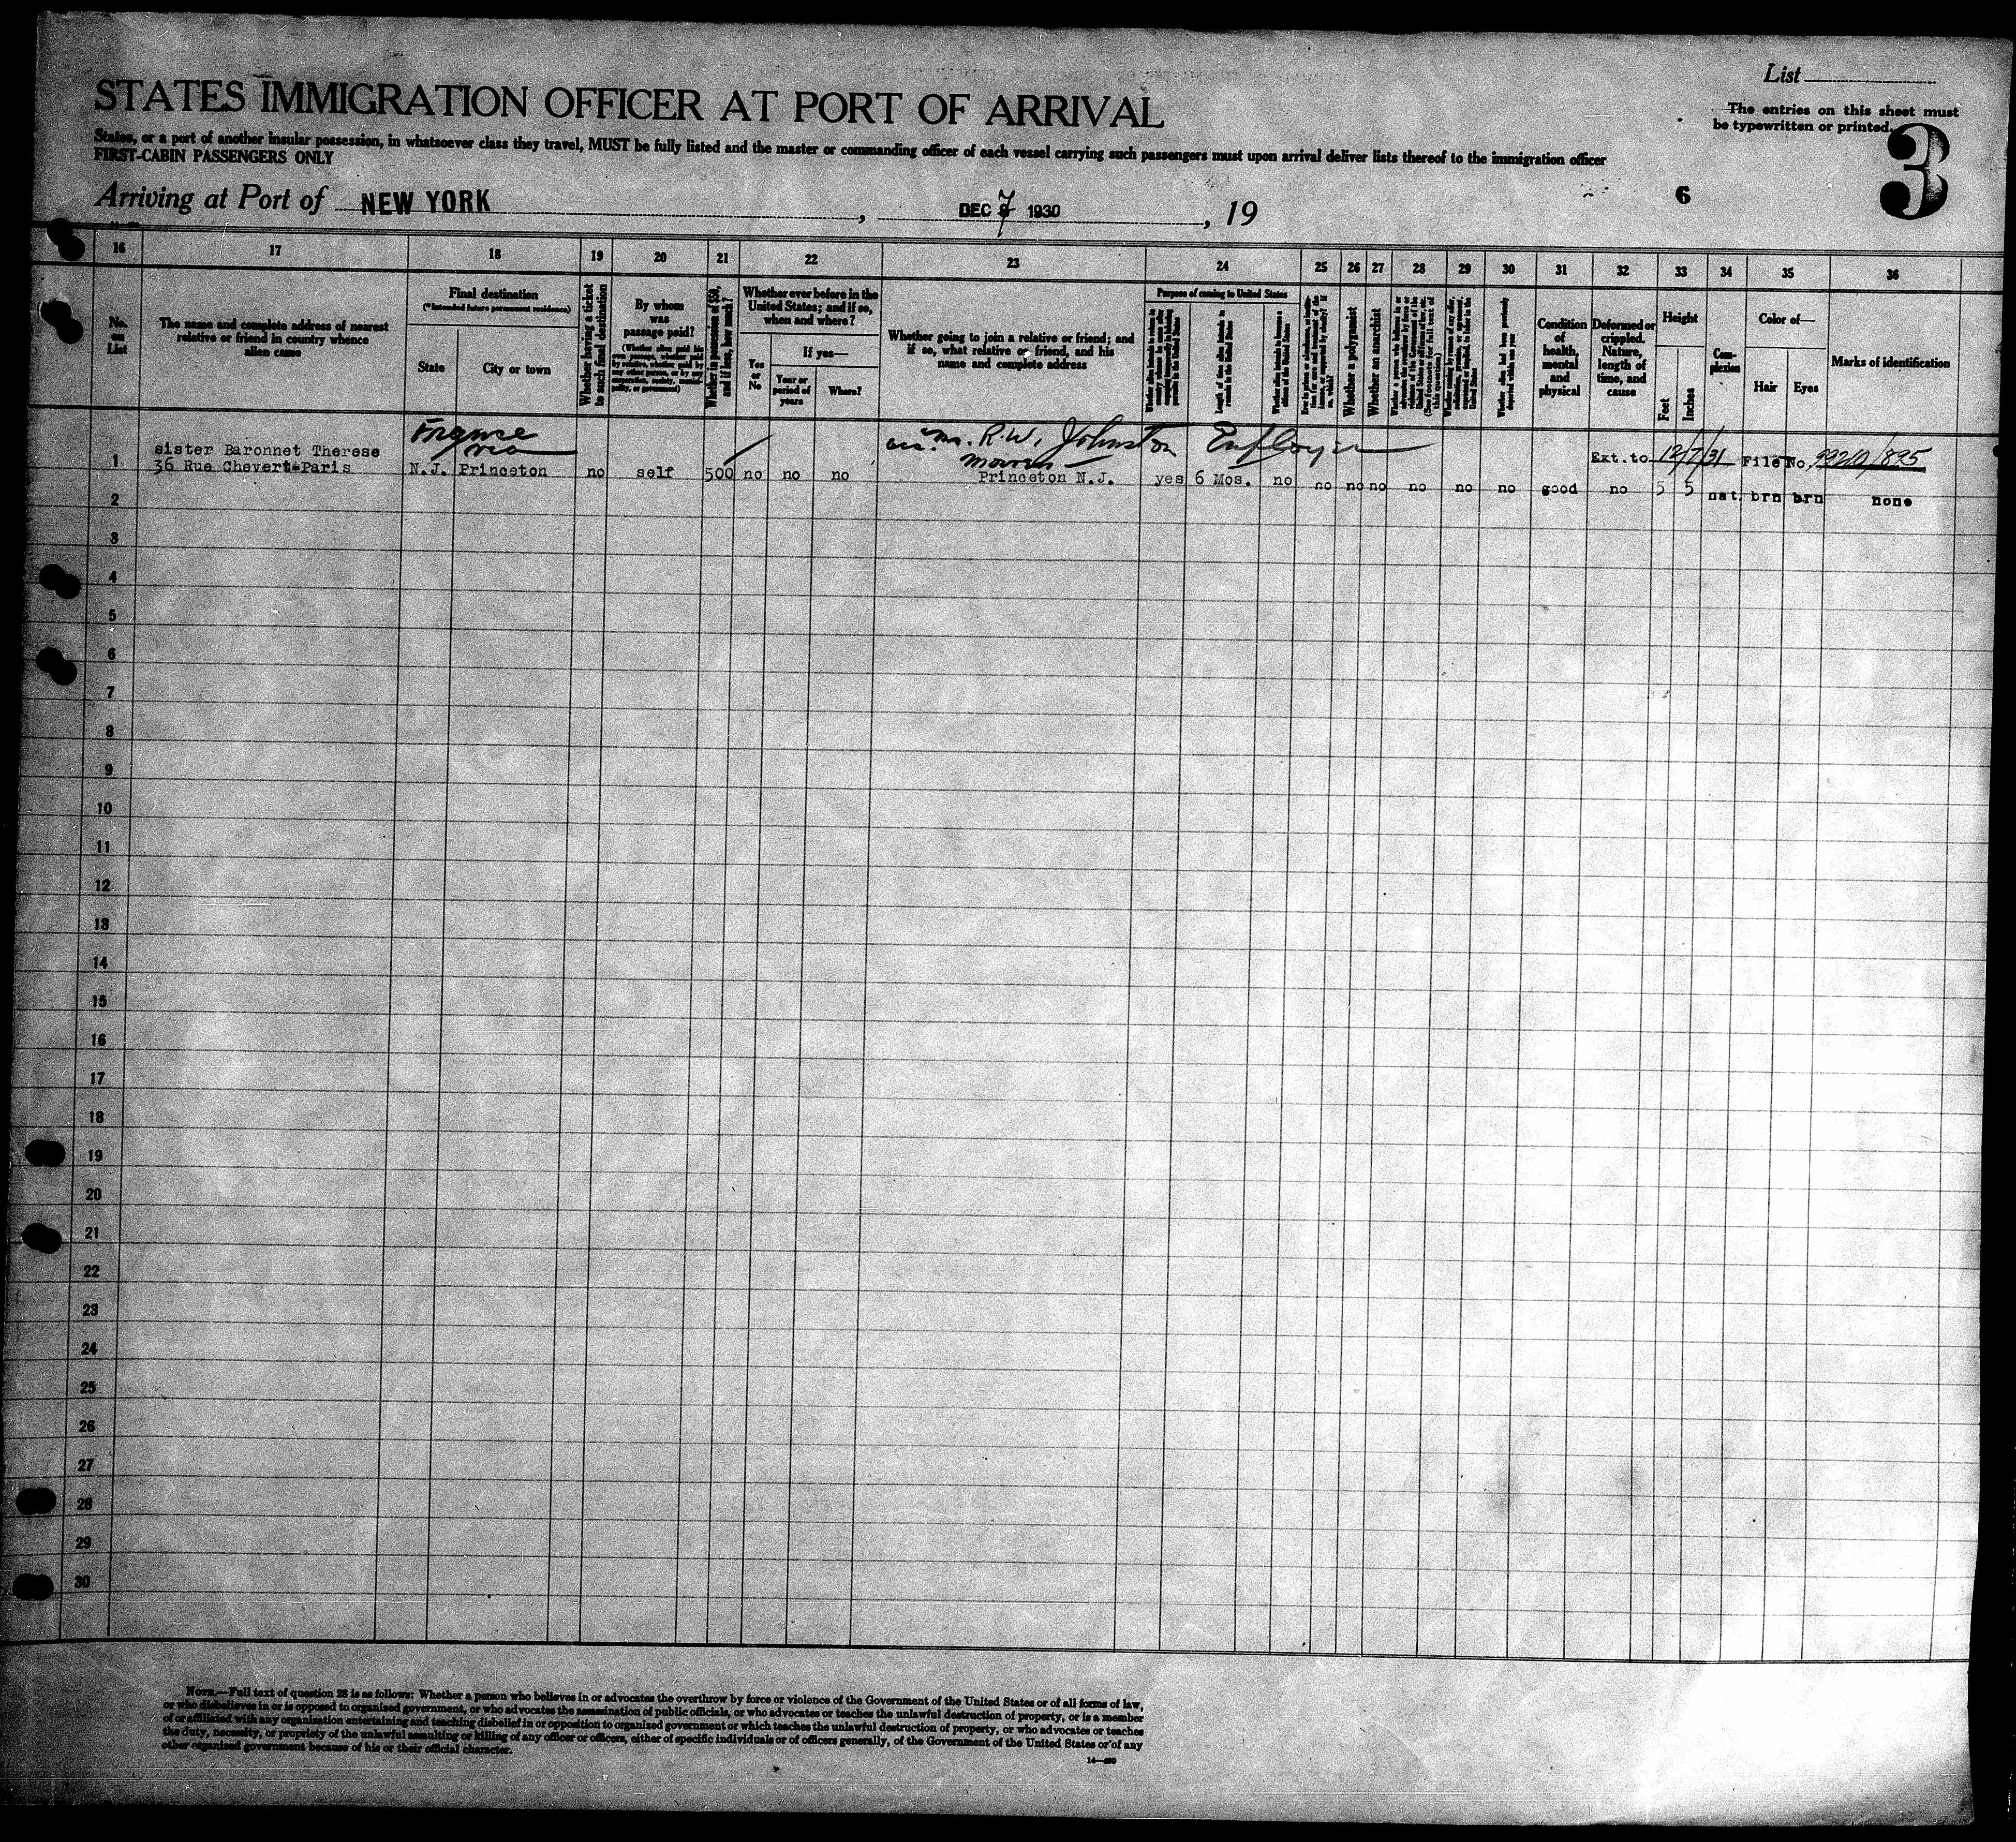 List
The entries on this sheet must
be typewritten or printed.
3
STATES IMMIGRATION OFFICER AT PORT OF ARRIVAL
States, or a port of another insular possession, in whatsoever class they travel, MUST be fully listed and the master or commanding officer of each vessel carrying such passengers must upon arrival deliver lists thereof to the immigration officer
FIRST-CABIN PASSENGERS ONLY
Arriving at Port of NEW YORK, DEC 7 1930, 19
6
16 17 18 19 20 21 22 23 24 25 26 27 28 29 30 31 32 33 34 35 36
No. on List
The name and complete address of nearest
relative or friend in country whence
alien came
Final destination
(*Intended future permanent residence)
State
City or town
Whether having a ticket
to such final destination
By whom
was
passage paid?
Whether in possession of $50,
and if less, how much?
Whether ever before in the
United States; and if so,
when and where?
Yes or No
If yes—
Year or
period of
years
Where?
Whether going to join a relative or friend; and
if so, what relative or friend, and his
name and complete address
Purpose of coming to United States
Whether a polygamist
Whether an anarchist
Condition
of
health,
mental
and
physical
Deformed or
crippled.
Nature,
length of
time, and
cause
Height
Feet
Inches
Com-
plexion
Color of—
Hair
Eyes
Marks of identification
France
sister Baronnet Therese
R.W. Johnston
Ext. to 12/7/31 File No. 99210/895
1 36 Rue Chevert-Paris N.J. Princeton no self 500 no no no Princeton N.J. yes 6 Mos. no no no no no no no good no 5 5 nat. brn brn none
2
3
4
5
6
7
8
9
10
11
12
13
14
15
16
17
18
19
20
21
22
23
24
25
26
27
28
29
30
NOTE.—Full text of question 28 is as follows: Whether a person who believes in or advocates the overthrow by force or violence of the Government of the United States or of all forms of law,
or who disbelieves in or is opposed to organized government, or who advocates the assassination of public officials, or who advocates or teaches the unlawful destruction of property, or is a member
of or affiliated with any organization entertaining and teaching disbelief in or opposition to organized government or which teaches the unlawful destruction of property, or who advocates or teaches
the duty, necessity, or propriety of the unlawful assaulting or killing of any officer or officers, either of specific individuals or of officers generally, of the Government of the United States or of any
other organized government because of his or their official character.